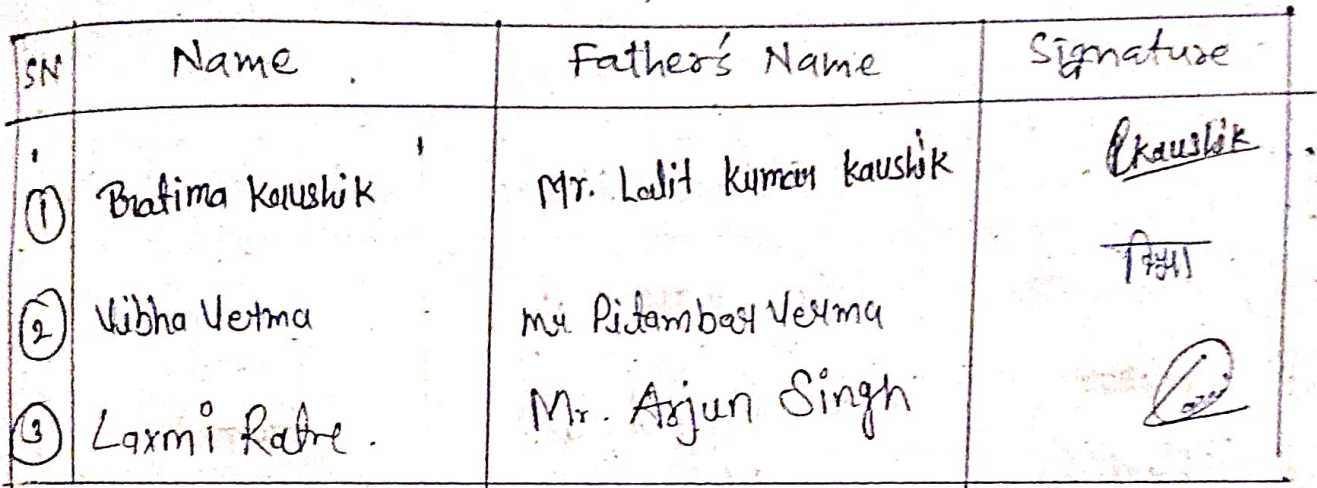 SN Name Father's Name Signature
1 Pratima Kaushik Mr. Lalit Kumar Kaushik Pkaushik
2 Vibha Verma Mr Pitambar Verma विभा
3 Laxmi Ratre. Mr. Arjun Singh